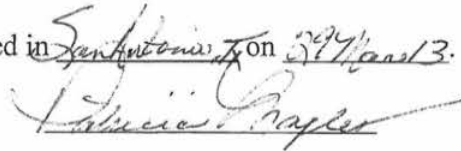 ed in San Antonio, Tx on 29 Mar 13.
Patricia